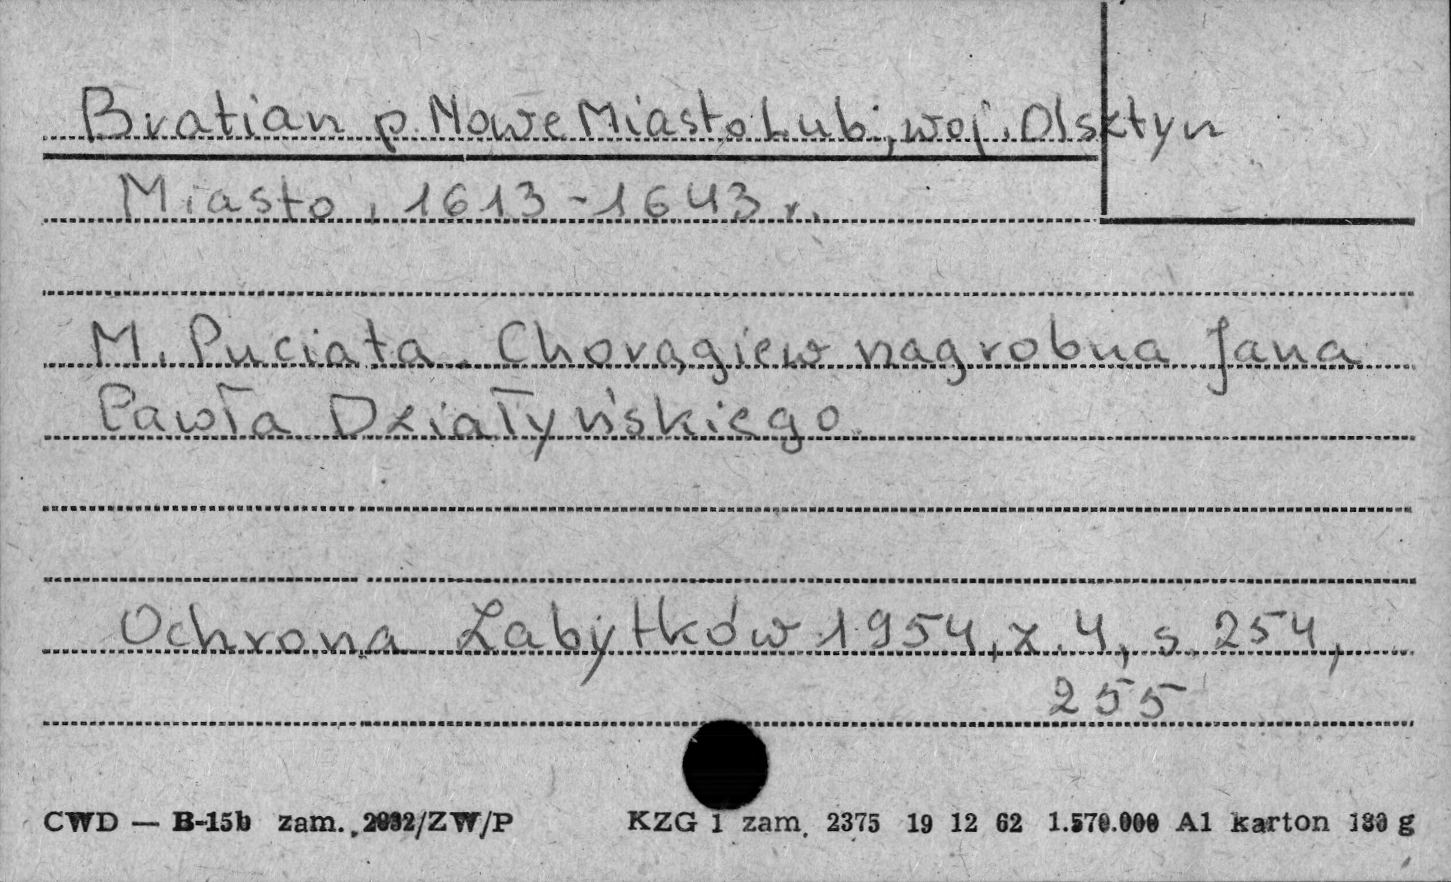 Bratian p. Nowe Miasto Lub., woj. Olsktyn
Miasto, 1613-1643 r.
M. Puciata. Chorągiew nagrobna Jana
Pawła Działyńskiego.
Ochrona Zabytków 1954, z. 4, s. 254,
255
CWD — B-15b zam. 2032/ZW/P KZG 1 zam. 2375 19 12 62 1.570.000 A1 karton 180 g